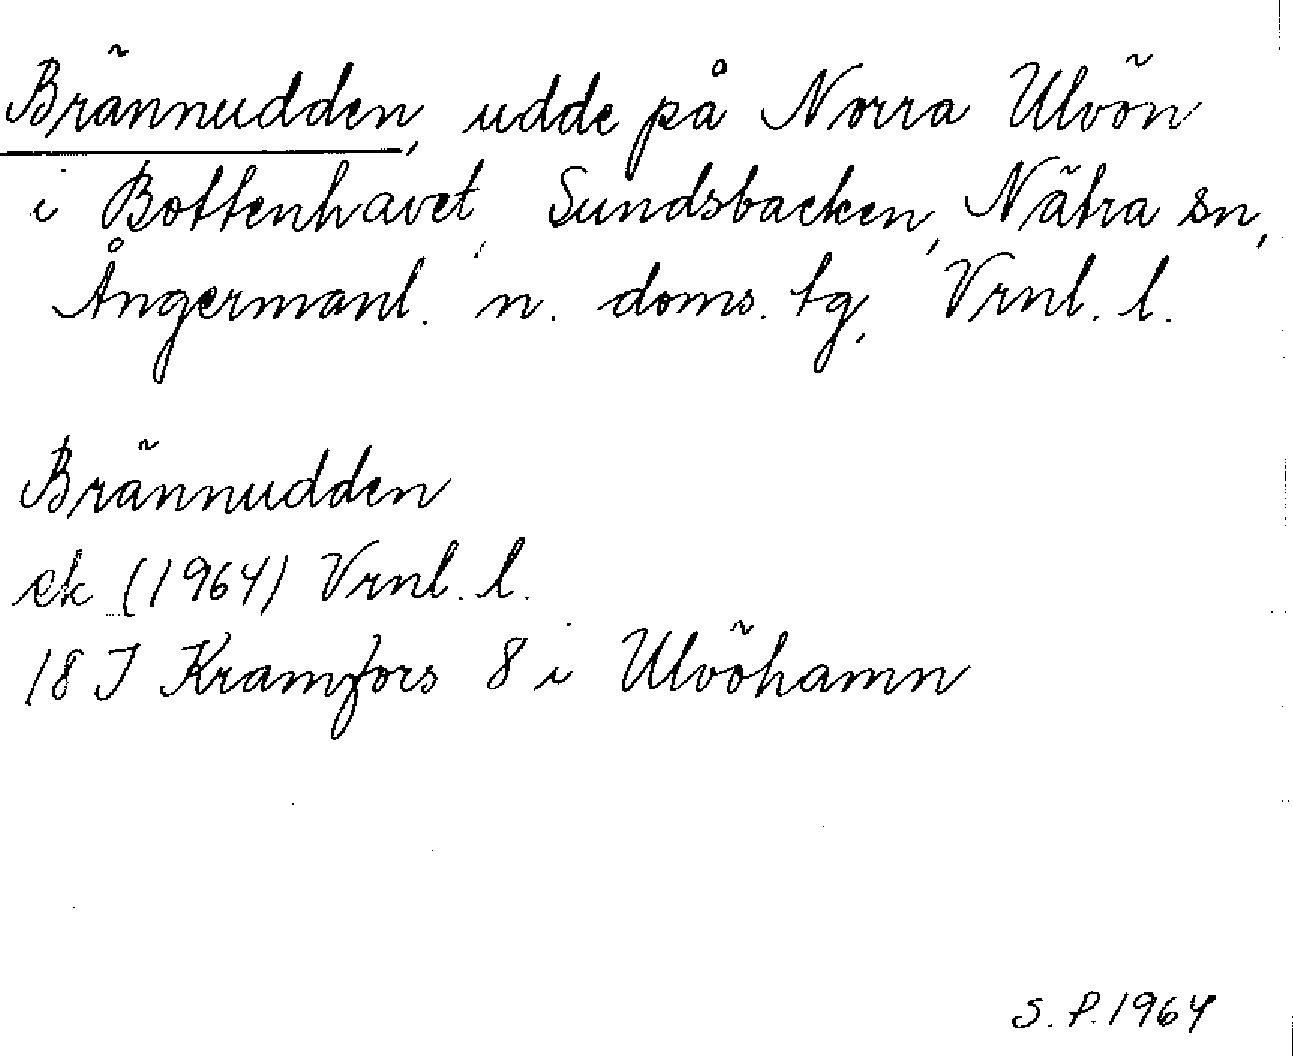 Brännudden, udde på Norra Ulvön
i Bottenhavet, Sundsbacken, Nätra sn,
Ångermanl. n. doms. tg, Vrnl. l.
Brännudden
ek (1964) Vrnl. l.
18 J Kramfors 8 i Ulvöhamn
S. P. 1964